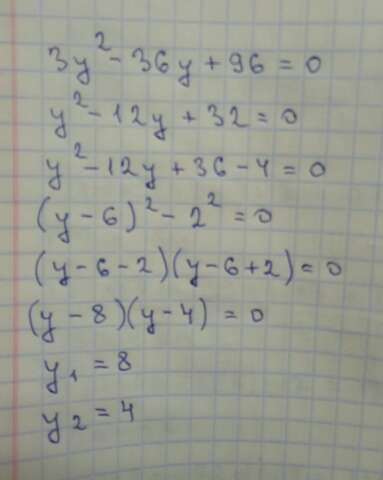 3y² - 36y + 96 = 0
y² - 12y + 32 = 0
y² - 12y + 36 - 4 = 0
(y - 6)² - 2² = 0
(y - 6 - 2)(y - 6 + 2) = 0
(y - 8)(y - 4) = 0
y₁ = 8
y₂ = 4